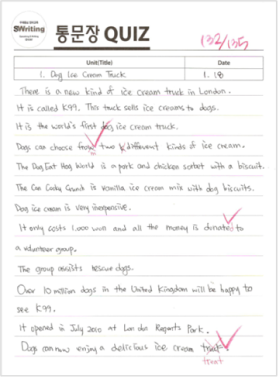 SWriting
통문장 QUIZ
132/135
Unit(Title) Date
1. Dog Ice Cream Truck 1. 18
There is a new kind of ice cream truck in London.
It is called K99. This truck sells ice creams to dogs.
It is the world's first dog ice cream truck.
Dogs can choose from two different kinds of ice cream.
The Dog Eat Hog World is a pork and chicken sorbet with a biscuit.
The Can Candy Crunch is vanilla ice cream mix with dog biscuits.
Dog ice cream is very inexpensive.
It only costs 1,000 won and all the money is donated to
a volunteer group.
The group assists rescue dogs.
Over 10 million dogs in the United Kingdom will be happy to
see K99.
It opened in July 2010 at London Regents Park.
Dogs can now enjoy a delicious ice cream
treat